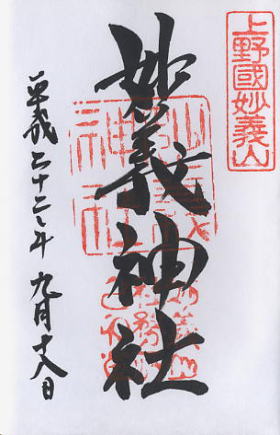 上野國妙義山
妙義神社
平成二十二年九月十八日